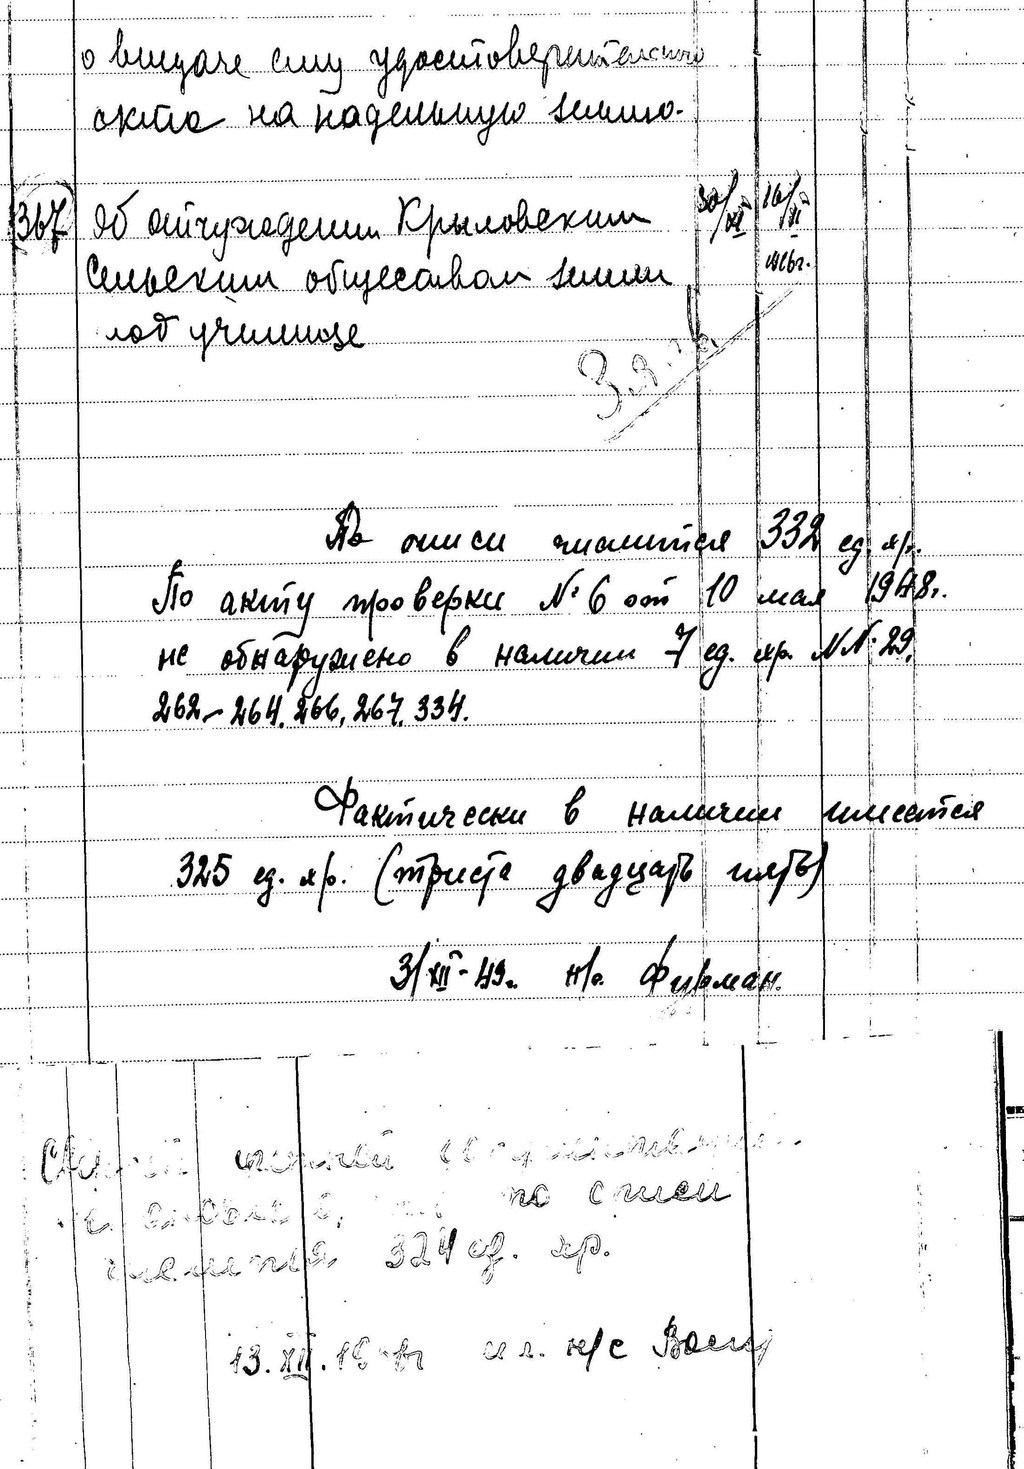 о выдаче ему удостоверительного
акта на надельную землю.
367 Об отчуждении Крыловским 30/XI 16/XI
Сельским обществом земли
под училище
По описи числится 332 ед. хр.
По акту проверки № 6 от 10 мая 1948 г.
не обнаружено в наличии 7 ед. хр. №№ 29,
262-264, 266, 267, 334.
Фактически в наличии имеется
325 ед. хр. (триста двадцать пять)
3/XII-49 г. н/с. Фурман.
по описи
числится 324 ед. хр.
13.XII. н/с